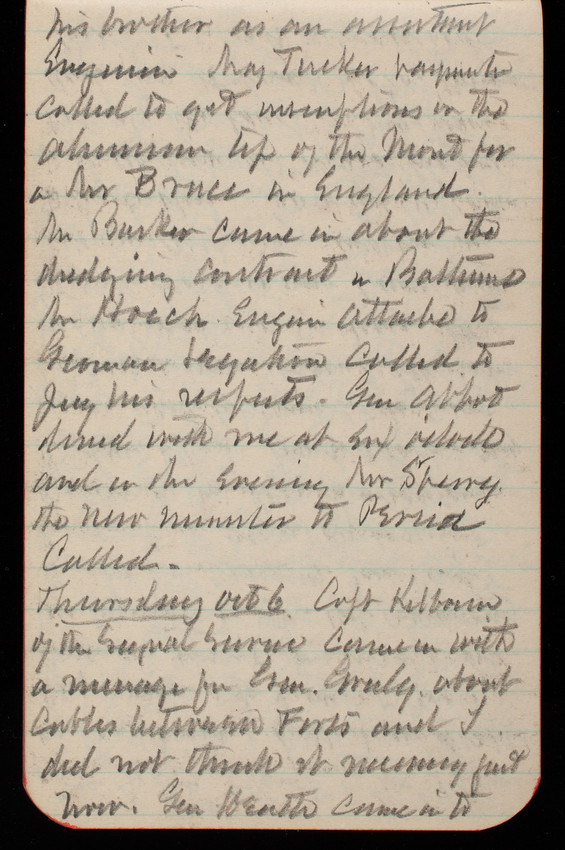 his brother as an assistant
Engineer Maj Tucker paymaster
called to get inscriptions on the
aluminum tip of the Monmt for
a Mr Bruce in England.
Mr Barker came in about the
dredging contract in Baltimore
Mr Hoech Engineer Attache to
German Legation called to
pay his respects. Gen Abbot
dined with me at six o'clock
and in the evening Mr Sperry
the new minister to Persia
Called.
Thursday Oct 6 Capt Kilbourne
of the Signal Service came in with
a message from Gen. Greely about
Cables between Forts and I
did not think it necessary just
now. Gen Heath came in to